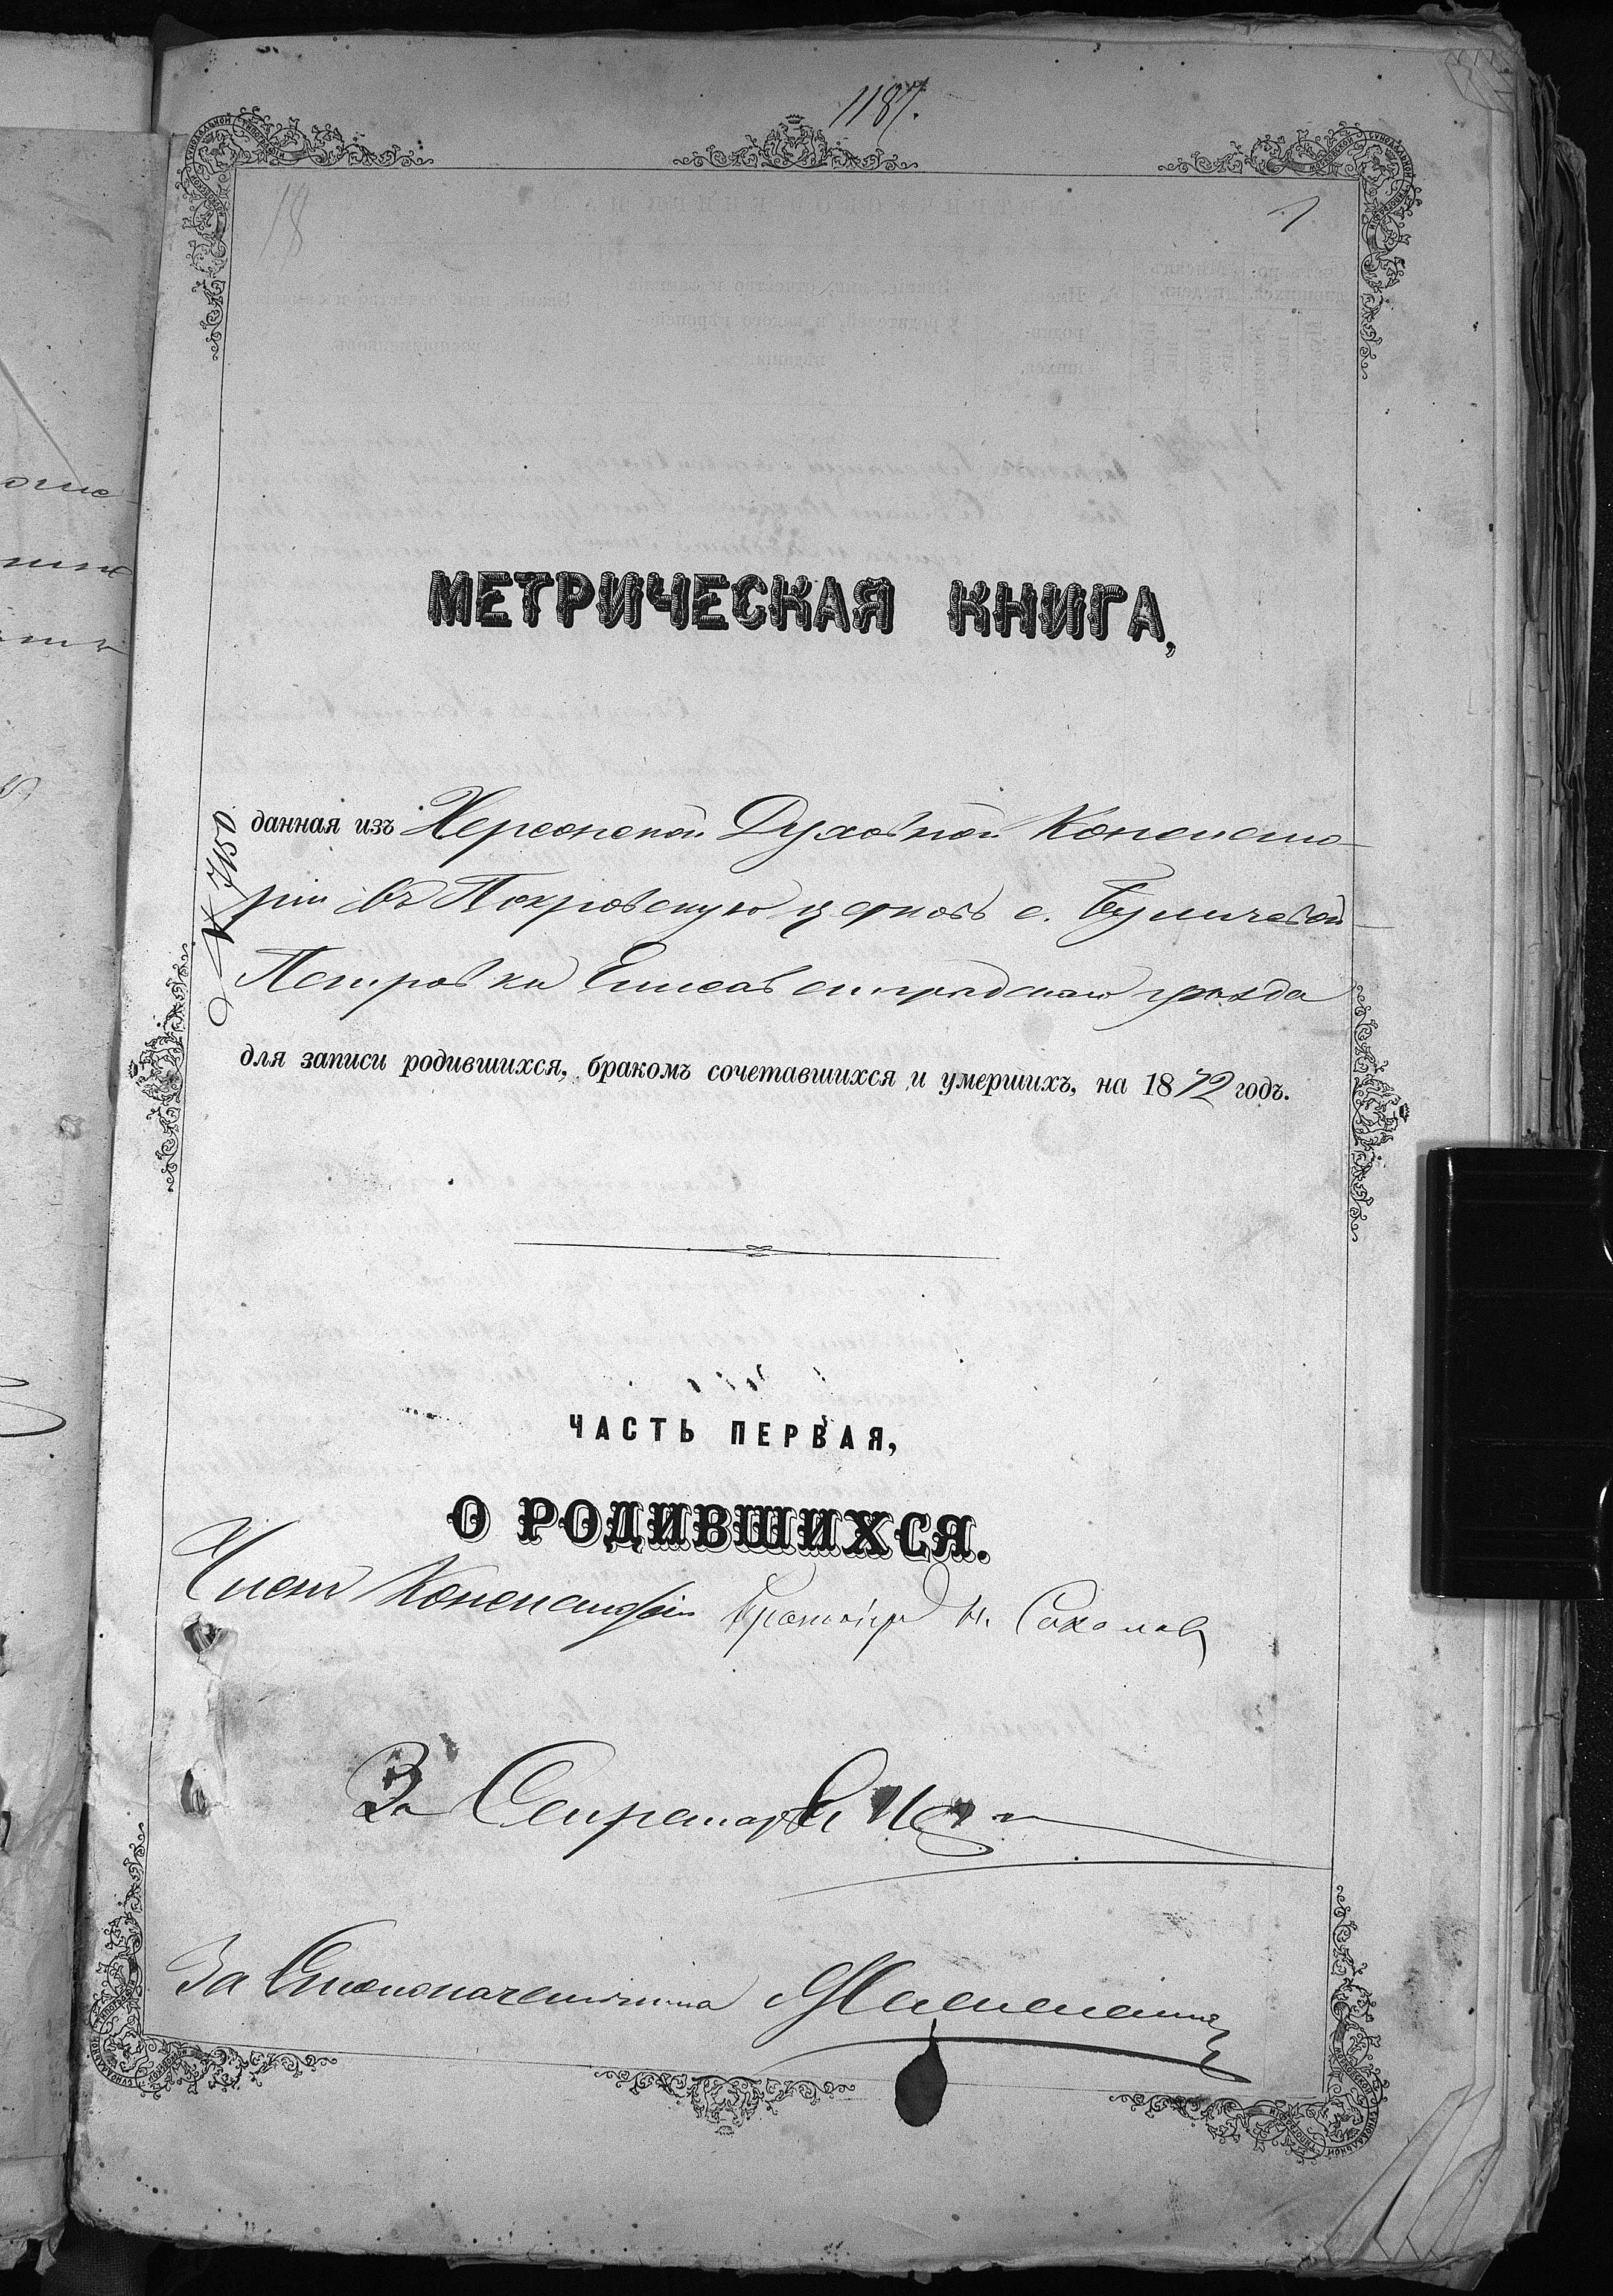 1187.
18
1
МЕТРИЧЕСКАЯ КНИГА,
№ 7150
данная изъ Херсонской Духовной Консисто-
ріи въ Покровскую церковь с. Буличевой
Петровки Елисаветградскаго уѣзда
для записи родившихся, бракомъ сочетавшихся и умершихъ, на 1872 годъ.
ЧАСТЬ ПЕРВАЯ,
О РОДИВШИХСЯ.
Членъ Консисторіи Протоіерей Н. Соколовъ
За Секретаря
За Столоначальника